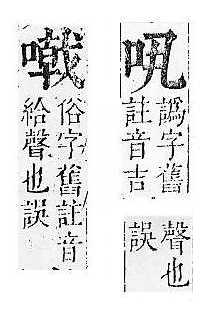 譌字舊
註音吉
聲也
誤
俗字舊註音
給聲也誤